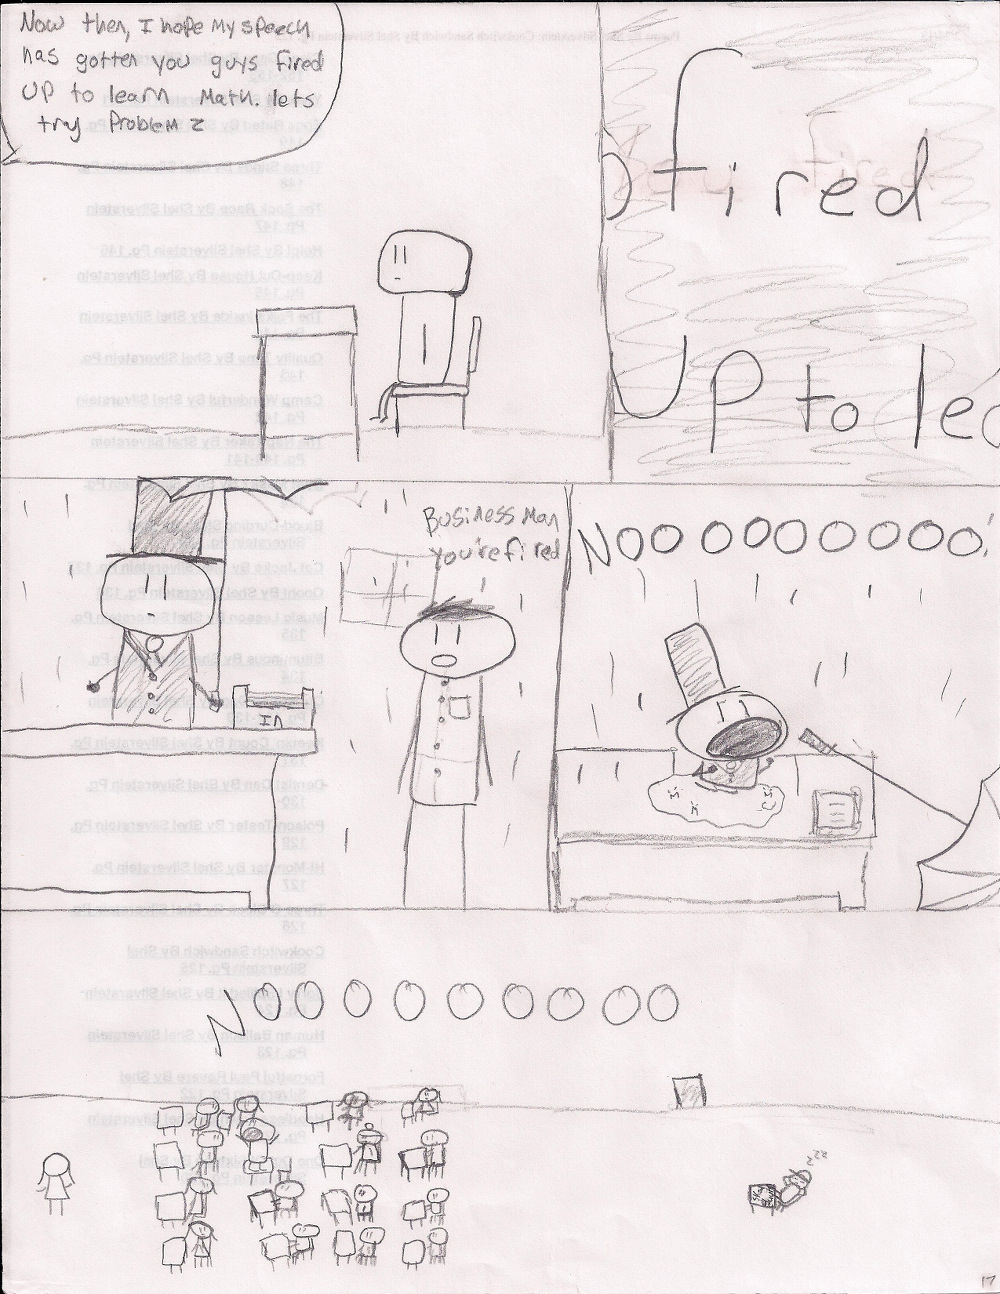 Now then, I hope My speech
has gotten you guys fired
UP to learn Math. lets
try Problem 2
fired
UP to lea
Business Man
you're fired
IN
NOOOOOOOOO!
NOOOOOOOOO
zzz
17